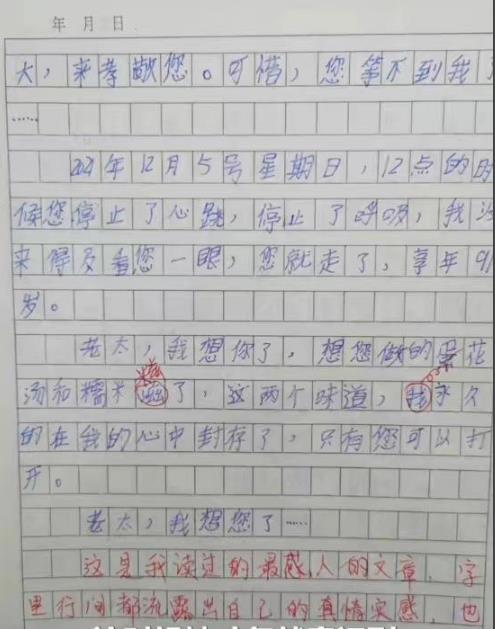 年 月 日
大，来孝敬您。可惜，您等不到我
……
2021年12月5号星期日，12点的时
候您停止了心跳，停止了呼吸，我没
来得及看您一眼，您就走了，享年91
岁。
老太，我想你了，想您做的蛋花
汤和糯米了，这两个味道，我永久
的在我的心中封存了，只有您可以打
开。
老太，我想您了……
这是我读过的最感人的文章，字
里行间都流露出自己的真情实感，也